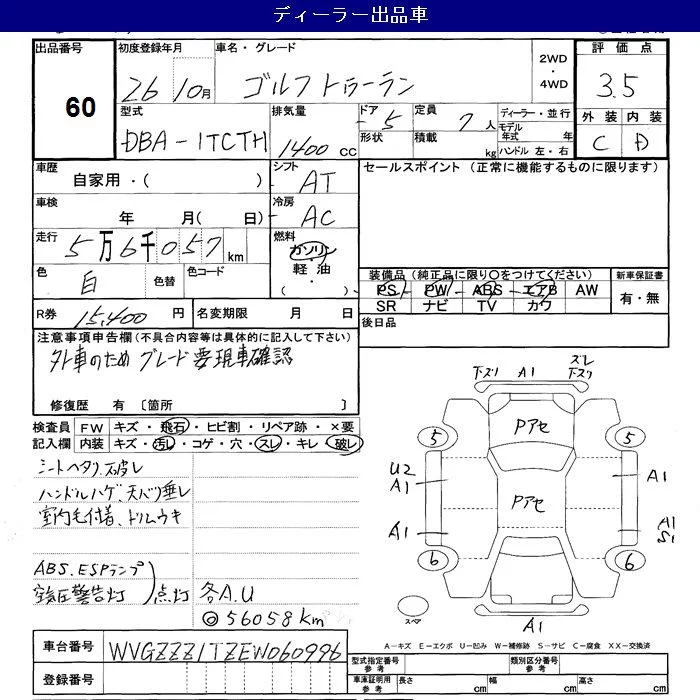 ディーラー出品車
出品番号 60
初度登録年月 26 10月
車名・グレード ゴルフトゥーラン
2WD ・ 4WD
評価点 3.5
型式 DBA-1TCTH
排気量 1400 cc
ドア 5
形状
定員 7人
積載 kg
ディーラー・並行
モデル年式 年
ハンドル 左・右
外装 内装
C D
車歴 自家用・( )
シフト AT
セールスポイント (正常に機能するものに限ります)
車検 年 月( 日)
冷房 AC
走行 5万6千057km
燃料 ガソリン・軽油・( )
色 白 色替
色コード
装備品 (純正品に限り○をつけてください)
PS PW ABS エアB AW
SR ナビ TV カワ
新車保証書 有・無
R券 15,400円
名変期限 月 日
後日品
注意事項申告欄 (不具合内容等は具体的に記入して下さい)
外車のためグレード要現車確認
修復歴 有 〔箇所 〕
検査員記入欄
FW キズ・飛石・ヒビ割・リペア跡・×要
内装 キズ・汚レ・コゲ・穴・スレ・キレ・破レ
シートヘタリ、破レ
ハンドルハゲ、天バリ垂レ
室内毛付着、トリムウキ
ABS、ESPランプ
空気圧警告灯 点灯
各A.U
◎56058km
下スリ A1 スレ 下スリ
Pアセ
5 5
U2
A1 A1
Pアセ
A1 A1
S1
6 6
スペア
A1
A…キズ E…エクボ U…凹み W…補修跡 S…サビ C…腐食 XX…交換済
車台番号 WVGZZZ1TZEW060996
登録番号
型式指定番号 参考
類別区分番号 参考
車庫証明用 参考
長さ cm 幅 cm 高さ cm